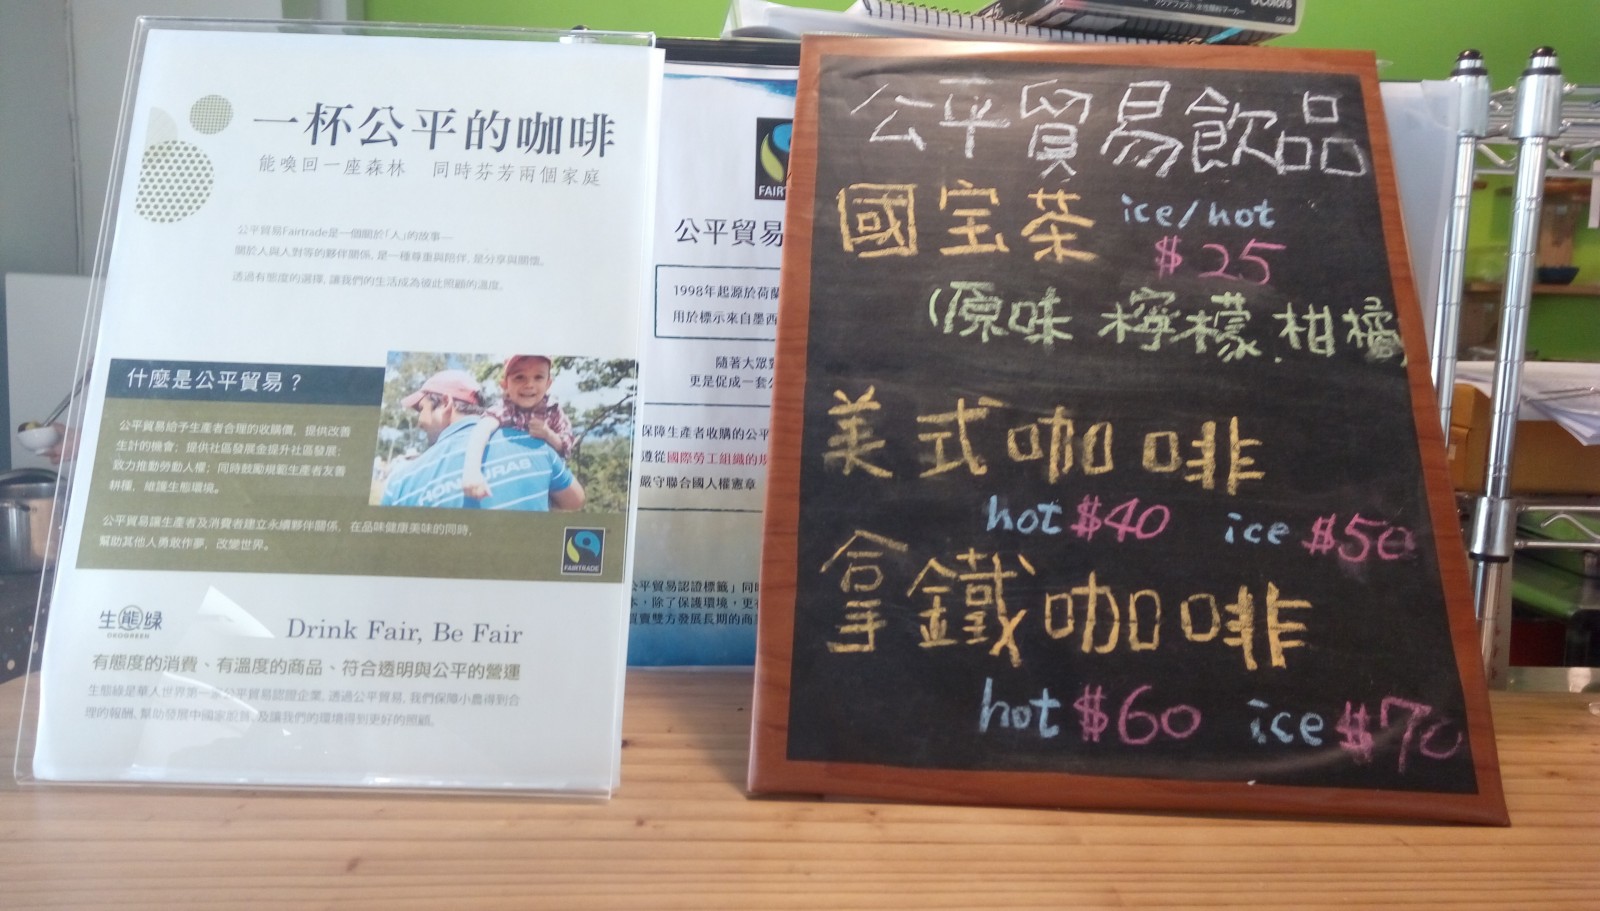 一杯公平的咖啡
能喚回一座森林 同時芬芳兩個家庭
公平貿易Fairtrade是一個關於「人」的故事—
關於人與人對等的夥伴關係, 是一種尊重與陪伴, 是分享與關懷。
透過有態度的選擇, 讓我們的生活成為彼此照顧的溫度。
什麼是公平貿易？
公平貿易給予生產者合理的收購價，提供改善
生計的機會；提供社區發展金提升社區發展；
致力推動勞動人權；同時鼓勵規範生產者友善
耕種，維護生態環境。
公平貿易讓生產者及消費者建立永續夥伴關係，在品味健康美味的同時，
幫助其他人勇敢作夢，改變世界。
HONDURAS
FAIRTRADE
生態绿
OKOGREEN
Drink Fair, Be Fair
有態度的消費、有溫度的商品、符合透明與公平的營運
生態綠是華人世界第一家公平貿易認證企業, 透過公平貿易, 我們保障小農得到合
理的報酬, 幫助發展中國家脫貧, 及讓我們的環境得到更好的照顧。
FAIRT
公平貿易
1998年起源於荷蘭
用於標示來自墨西
隨著大眾
更是促成一套
保障生產者收購的公平
遵從國際勞工組織的規
嚴守聯合國人權憲章
公平貿易認證標籤」同
本，除了保護環境，更
買賣雙方發展長期的商
公平貿易飲品
國宝茶 ice/hot
$25
(原味 檸檬.柑橘)
美式咖啡
hot $40 ice $50
拿鐵咖啡
hot $60 ice $70